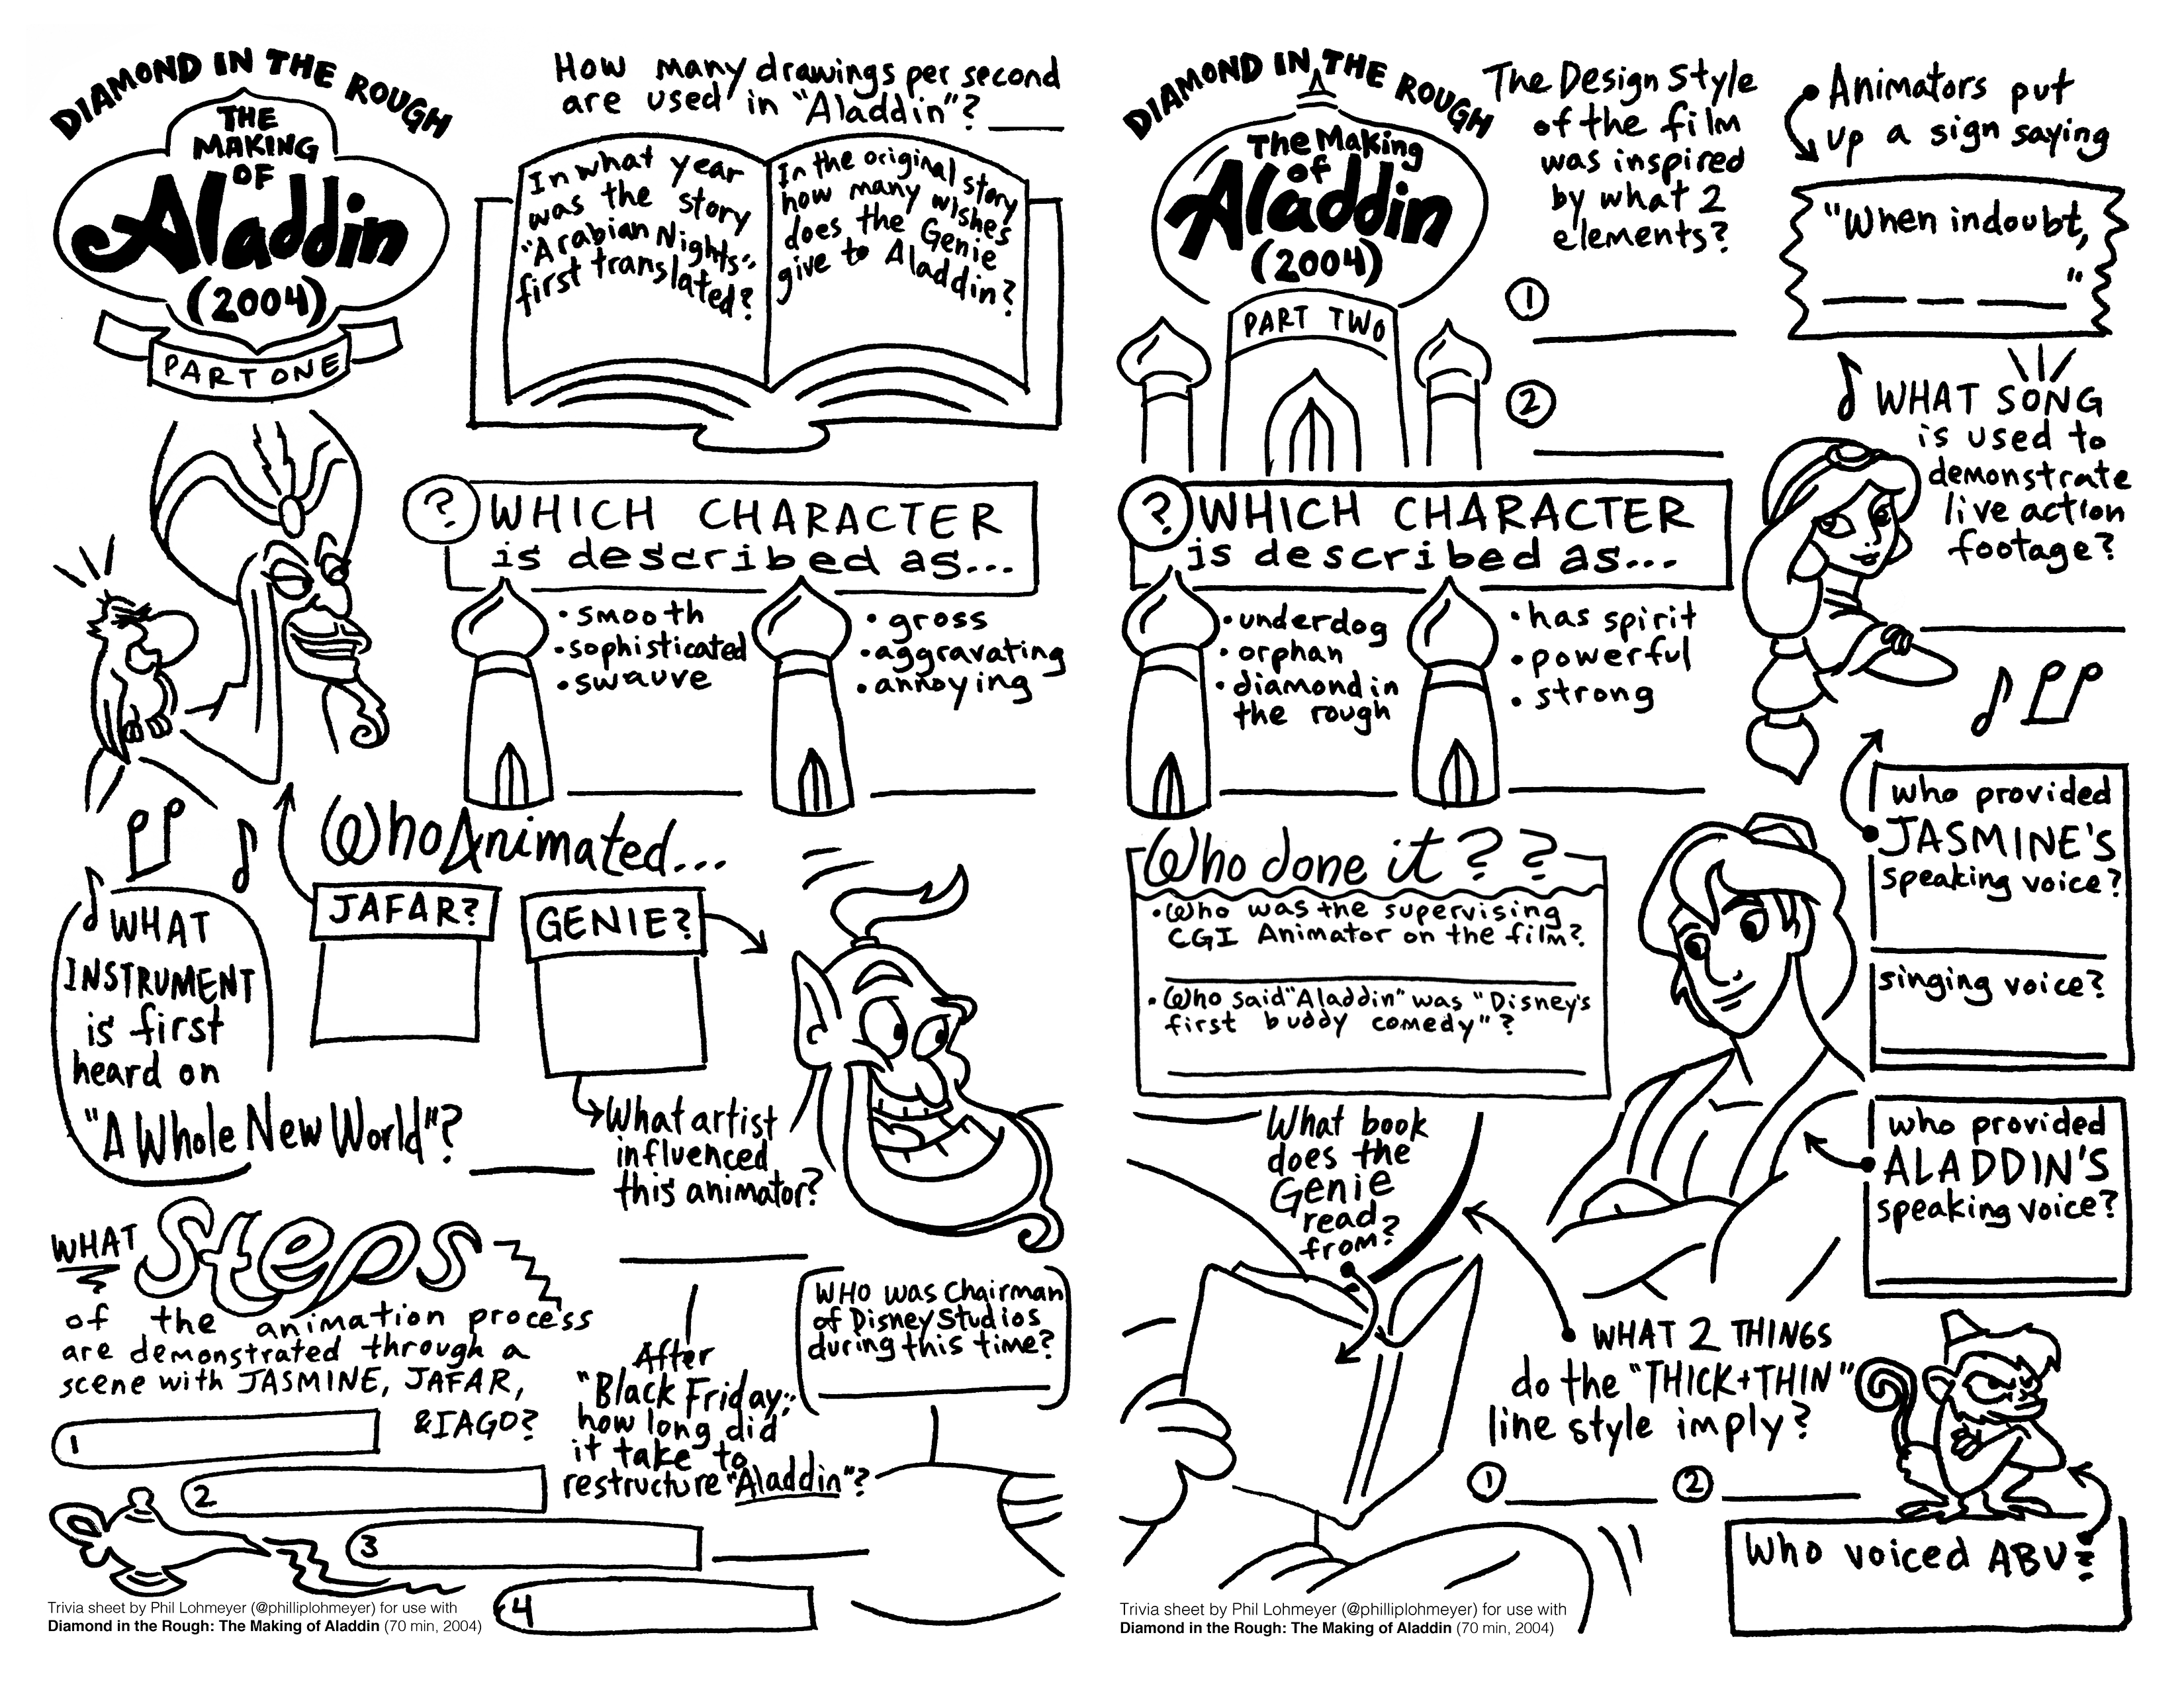 DIAMOND IN THE ROUGH
THE
MAKING
OF
Aladdin
(2004)
PART ONE
How many drawings per second
are used in "Aladdin"?
In what year
was the story
"Arabian Nights"
first translated?
In the original story
how many wishes
does the Genie
give to Aladdin?
? WHICH CHARACTER
is described as...
• smooth
• sophisticated
• swauve
• gross
• aggravating
• annoying
Who Animated...
JAFAR?
GENIE?
WHAT
INSTRUMENT
is first
heard on
"A Whole New World"?
What artist
influenced
this animator?
WHAT Steps
of the animation process
are demonstrated through a
scene with JASMINE, JAFAR,
& IAGO?
1
2
3
4
After
"Black Friday,"
how long did
it take to
restructure "Aladdin"?
WHO was Chairman
of Disney Studios
during this time?
Trivia sheet by Phil Lohmeyer (@philliplohmeyer) for use with
Diamond in the Rough: The Making of Aladdin (70 min, 2004)
DIAMOND IN THE ROUGH
The Making
of
Aladdin
(2004)
PART TWO
The Design Style
of the film
was inspired
by what 2
elements?
1
2
• Animators put
up a sign saying
"When indoubt,
"
WHAT SONG
is used to
demonstrate
live action
footage?
? WHICH CHARACTER
is described as...
• underdog
• orphan
• diamond in
the rough
• has spirit
• powerful
• strong
Who done it??
• Who was the supervising
CGI Animator on the film?
• Who said "Aladdin" was "Disney's
first buddy comedy"?
who provided
JASMINE'S
speaking voice?
singing voice?
who provided
ALADDIN'S
speaking voice?
What book
does the
Genie
read
from?
WHAT 2 THINGS
do the "THICK+THIN"
line style imply?
1
2
Who voiced ABU?
Trivia sheet by Phil Lohmeyer (@philliplohmeyer) for use with
Diamond in the Rough: The Making of Aladdin (70 min, 2004)